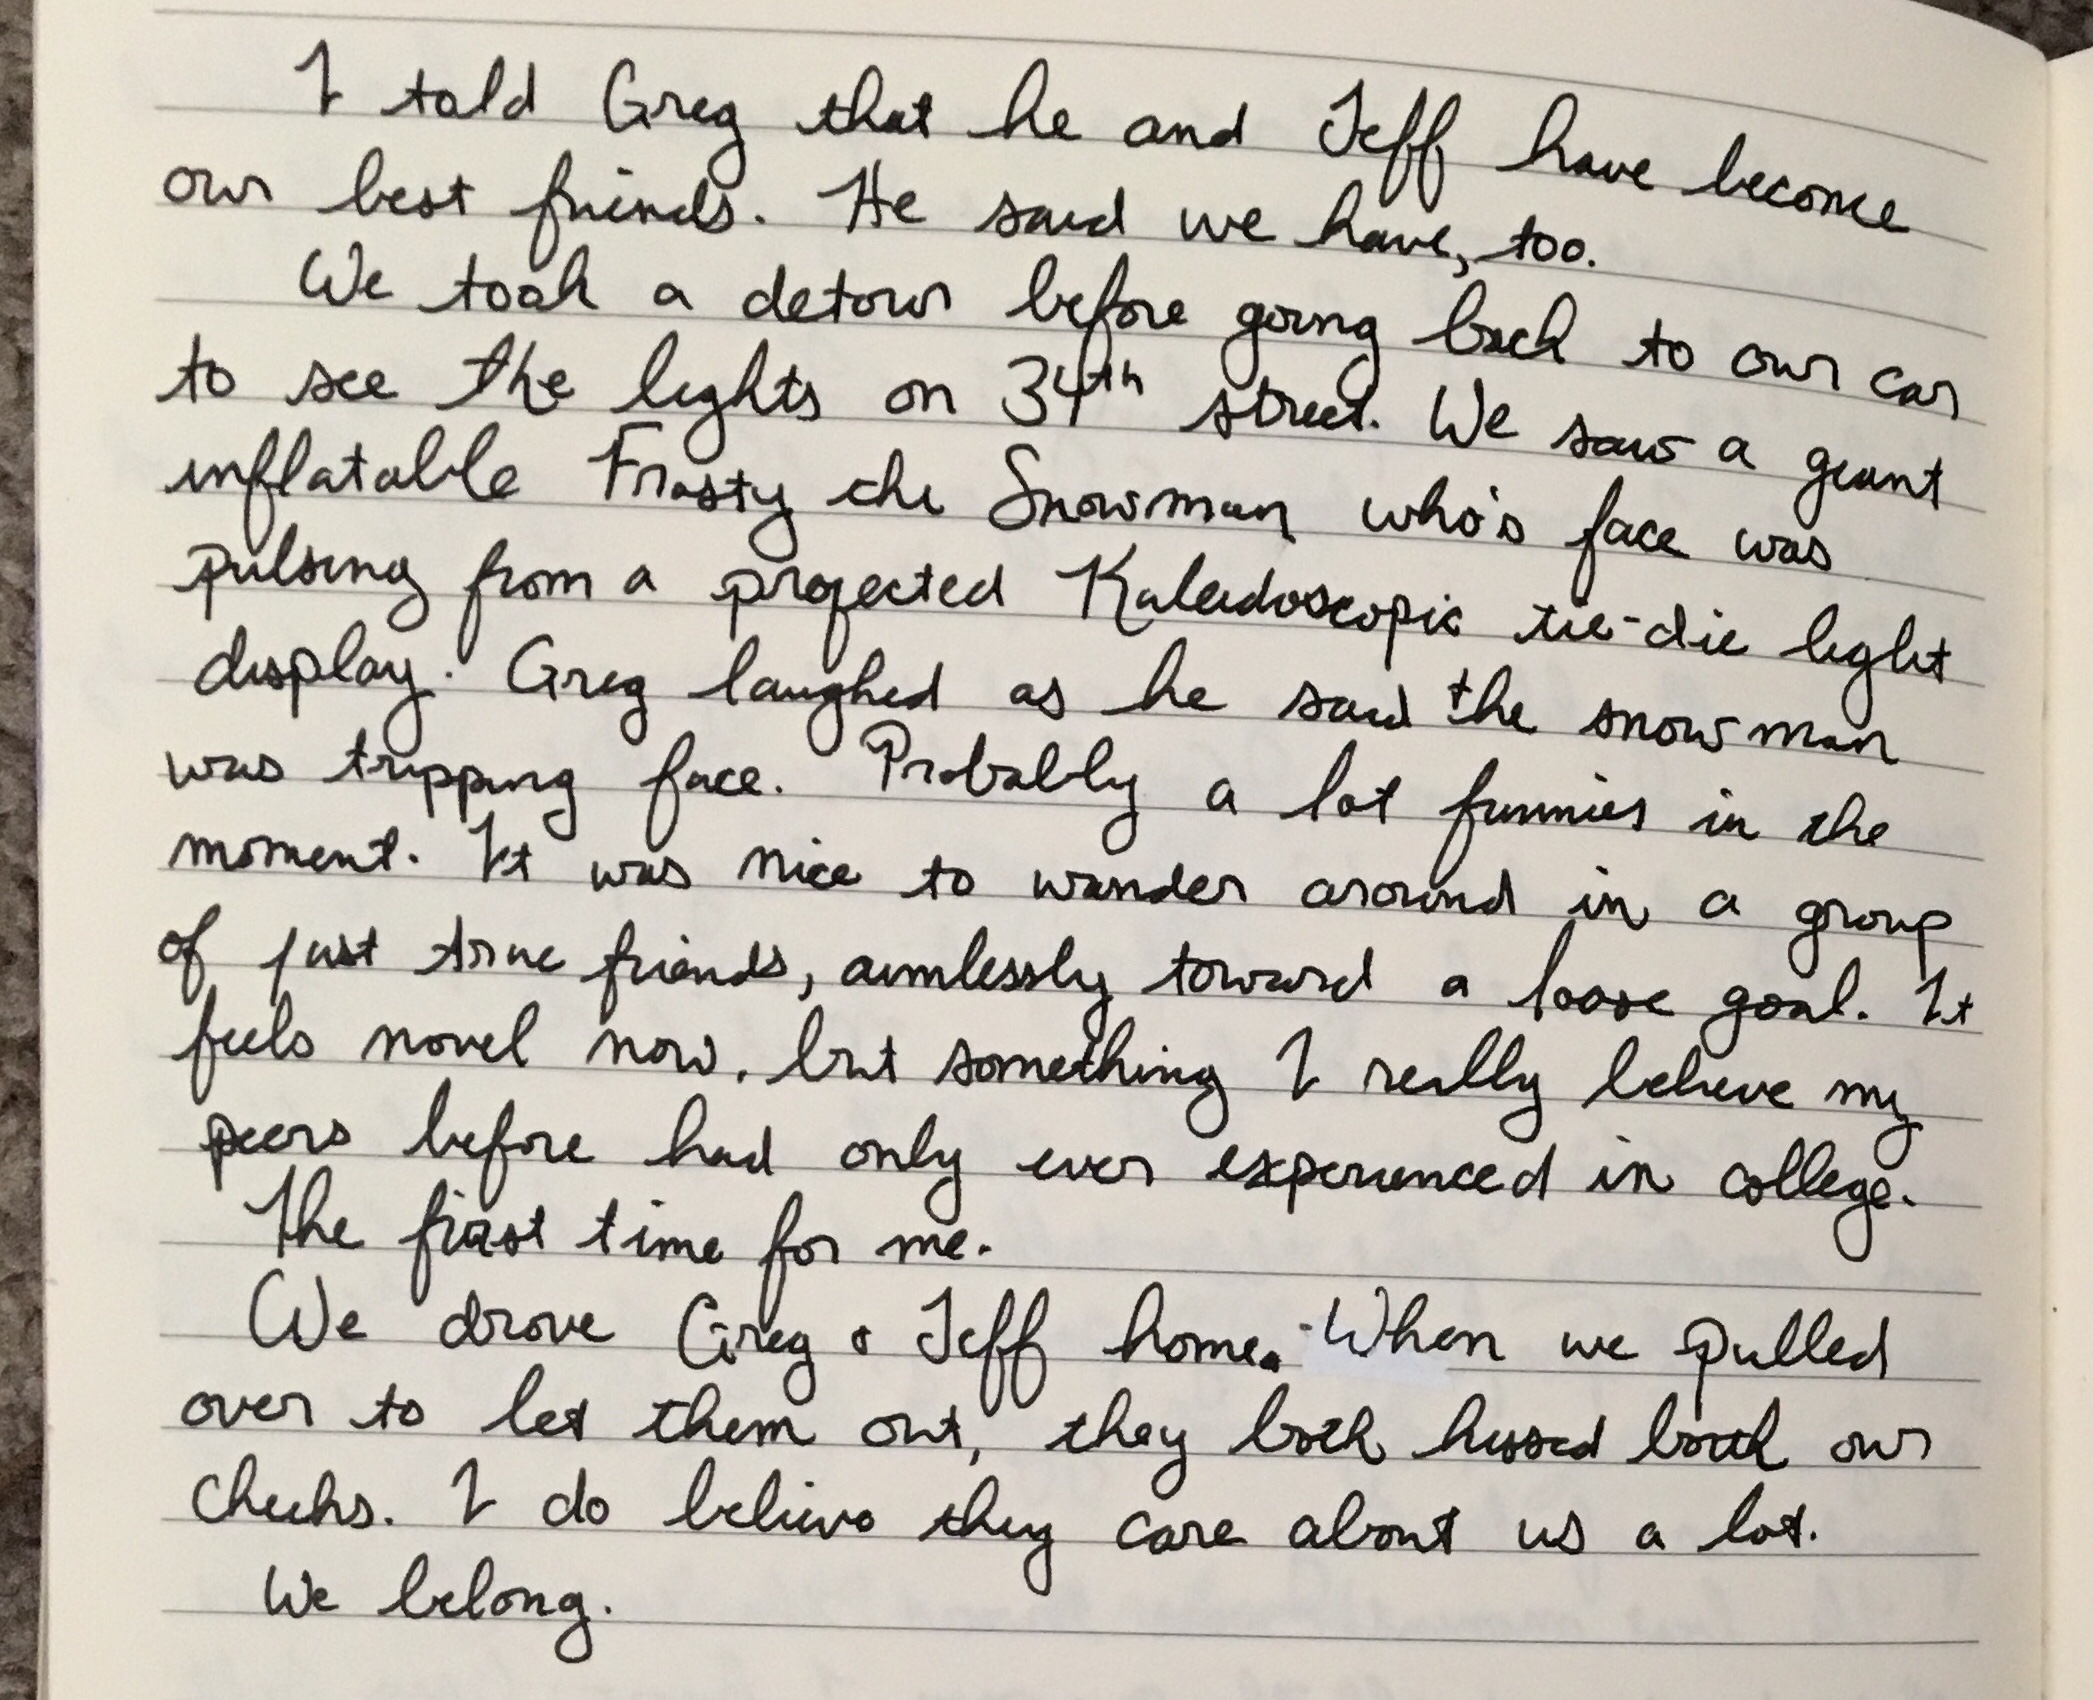 I told Greg that he and Jeff have become
our best friends. He said we have, too.
We took a detour before going back to our car
to see the lights on 34th street. We saw a giant
inflatable Frosty the Snowman who's face was
pulsing from a projected Kaleidoscopic tie-die light
display. Greg laughed as he said the snowman
was tripping face. Probably a lot funnier in the
moment. It was nice to wander around in a group
of just true friends, aimlessly toward a loose goal. It
feels novel now, but something I really believe my
peers before had only ever experienced in college.
The first time for me.
We drove Greg & Jeff home. When we pulled
over to let them out, they both kissed both our
cheeks. I do believe they care about us a lot.
We belong.